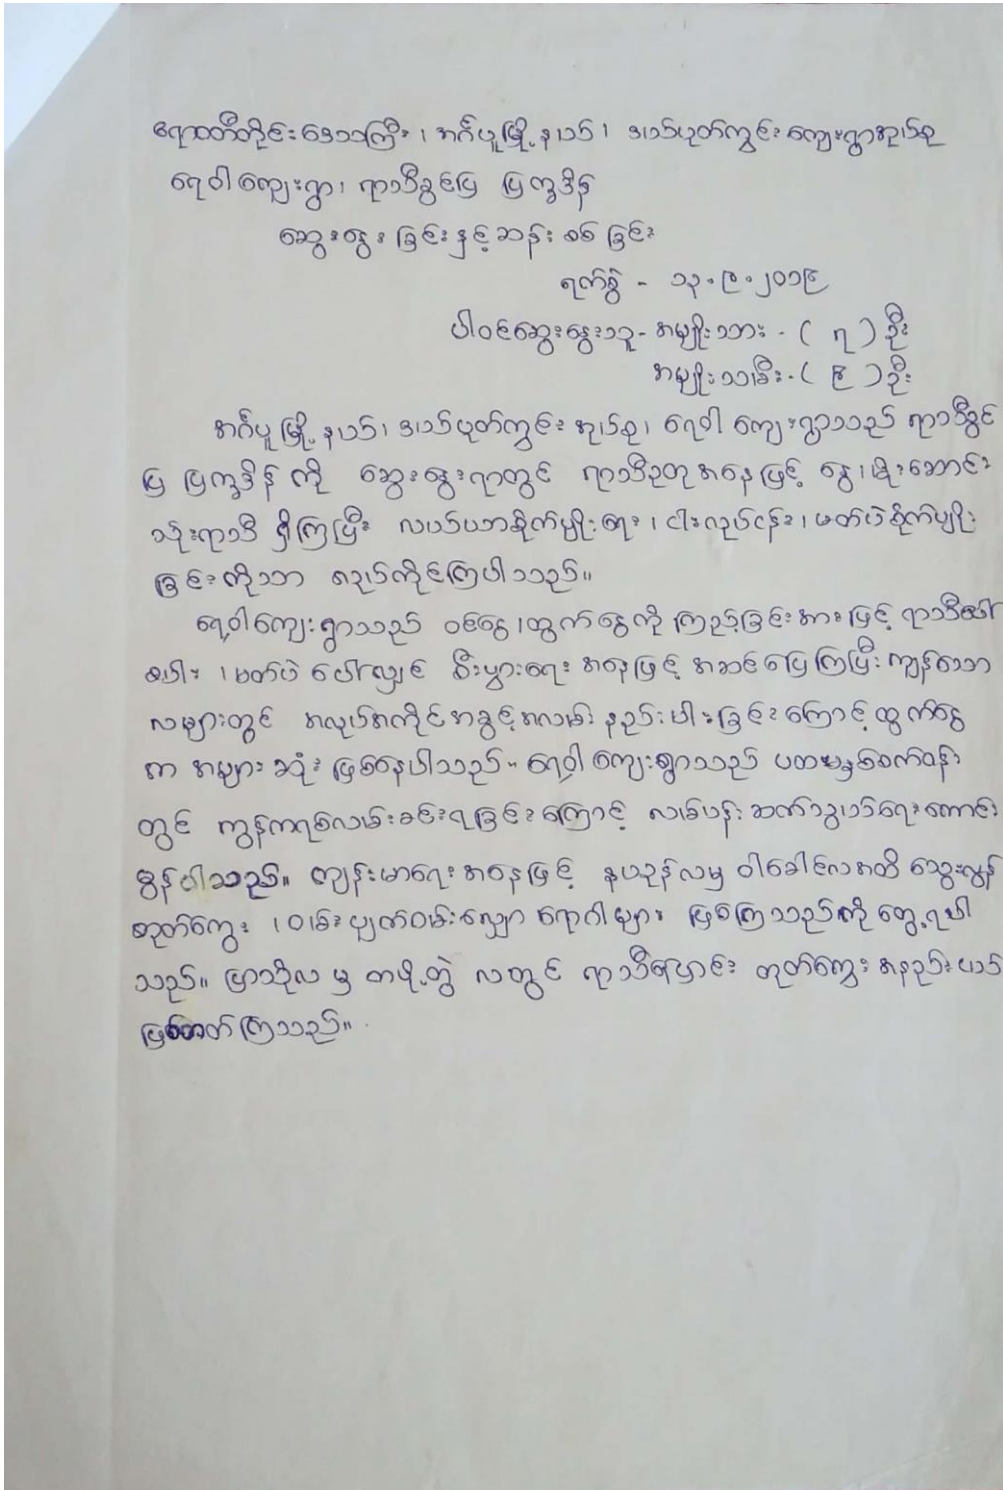 ဧရာဝတီတိုင်းဒေသကြီး၊ အင်္ဂပူမြို့နယ်၊ ဒယ်ပုတ်ကွင်းကျေးရွာအုပ်စု
ရေဝါကျေးရွာ၊ ရာသီခွင်ပြ ပြက္ခဒိန်
ဆွေးနွေးခြင်းနှင့်ဆန်းစစ်ခြင်း
ရက်စွဲ - ၁၃.၉.၂၀၁၉
ပါဝင်ဆွေးနွေးသူ - အမျိုးသား - ( ၇ ) ဦး
အမျိုးသမီး - ( ၉ ) ဦး
အင်္ဂပူမြို့နယ်၊ ဒယ်ပုတ်ကွင်းအုပ်စု၊ ရေဝါကျေးရွာသည် ရာသီခွင်
ပြ ပြက္ခဒိန်ကို ဆွေးနွေးရာတွင် ရာသီဥတုအနေဖြင့် နွေ၊ မိုး၊ဆောင်း
သုံးရာသီ ရှိကြပြီး လယ်ယာစိုက်ပျိုးရေး၊ ငါးလုပ်ငန်း၊ မတ်ပဲစိုက်ပျိုး
ခြင်းကိုသာ လုပ်ကိုင်ကြပါသည်။
ရေဝါကျေးရွာသည် ဝင်ငွေ၊ထွက်ငွေကို ကြည့်ခြင်းအားဖြင့် ရာသီပေါ်
စပါး၊ မတ်ပဲ ပေါ်လျှင် စီးပွားရေးအနေဖြင့် အဆင်ပြေကြပြီး ကျန်သော
လများတွင် အလုပ်အကိုင်အခွင့်အလမ်း နည်းပါးခြင်းကြောင့် ထွက်ငွေ
က အများဆုံး ဖြစ်နေပါသည်။ ရေဝါကျေးရွာသည် ပထမနှစ်စက်ဝန်း
တွင် ကွန်ကရစ်လမ်းခင်းရခြင်းကြောင့် လမ်းပန်းဆက်သွယ်ရေးကောင်း
မွန်ပါသည်။ ကျန်းမာရေးအနေဖြင့် နယုန်လမှ ဝါခေါင်လအထိ သွေးလွန်
တုတ်ကွေး၊ ဝမ်းပျက်ဝမ်းလျှော ရောဂါများ ဖြစ်ကြသည်ကို တွေ့ရပါ
သည်။ ပြာသိုလမှ တပို့တွဲလတွင် ရာသီပြောင်း တုတ်ကွေး အနည်းငယ်
ဖြစ်တတ်ကြသည်။